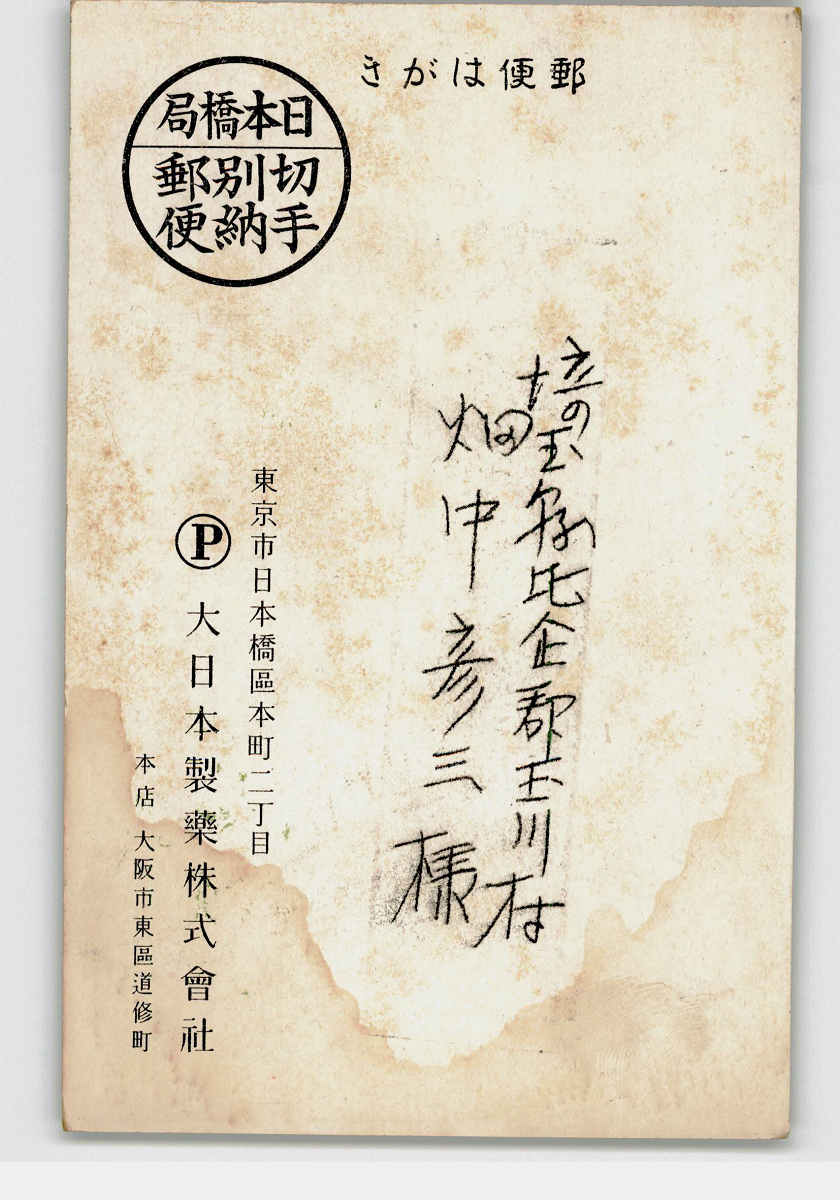 郵便はがき
日本橋局
切手
別納
郵便
埼玉県比企郡玉川村
畑中彦三様
東京市日本橋區本町二丁目
Ⓟ 大日本製藥株式會社
本店 大阪市東區道修町